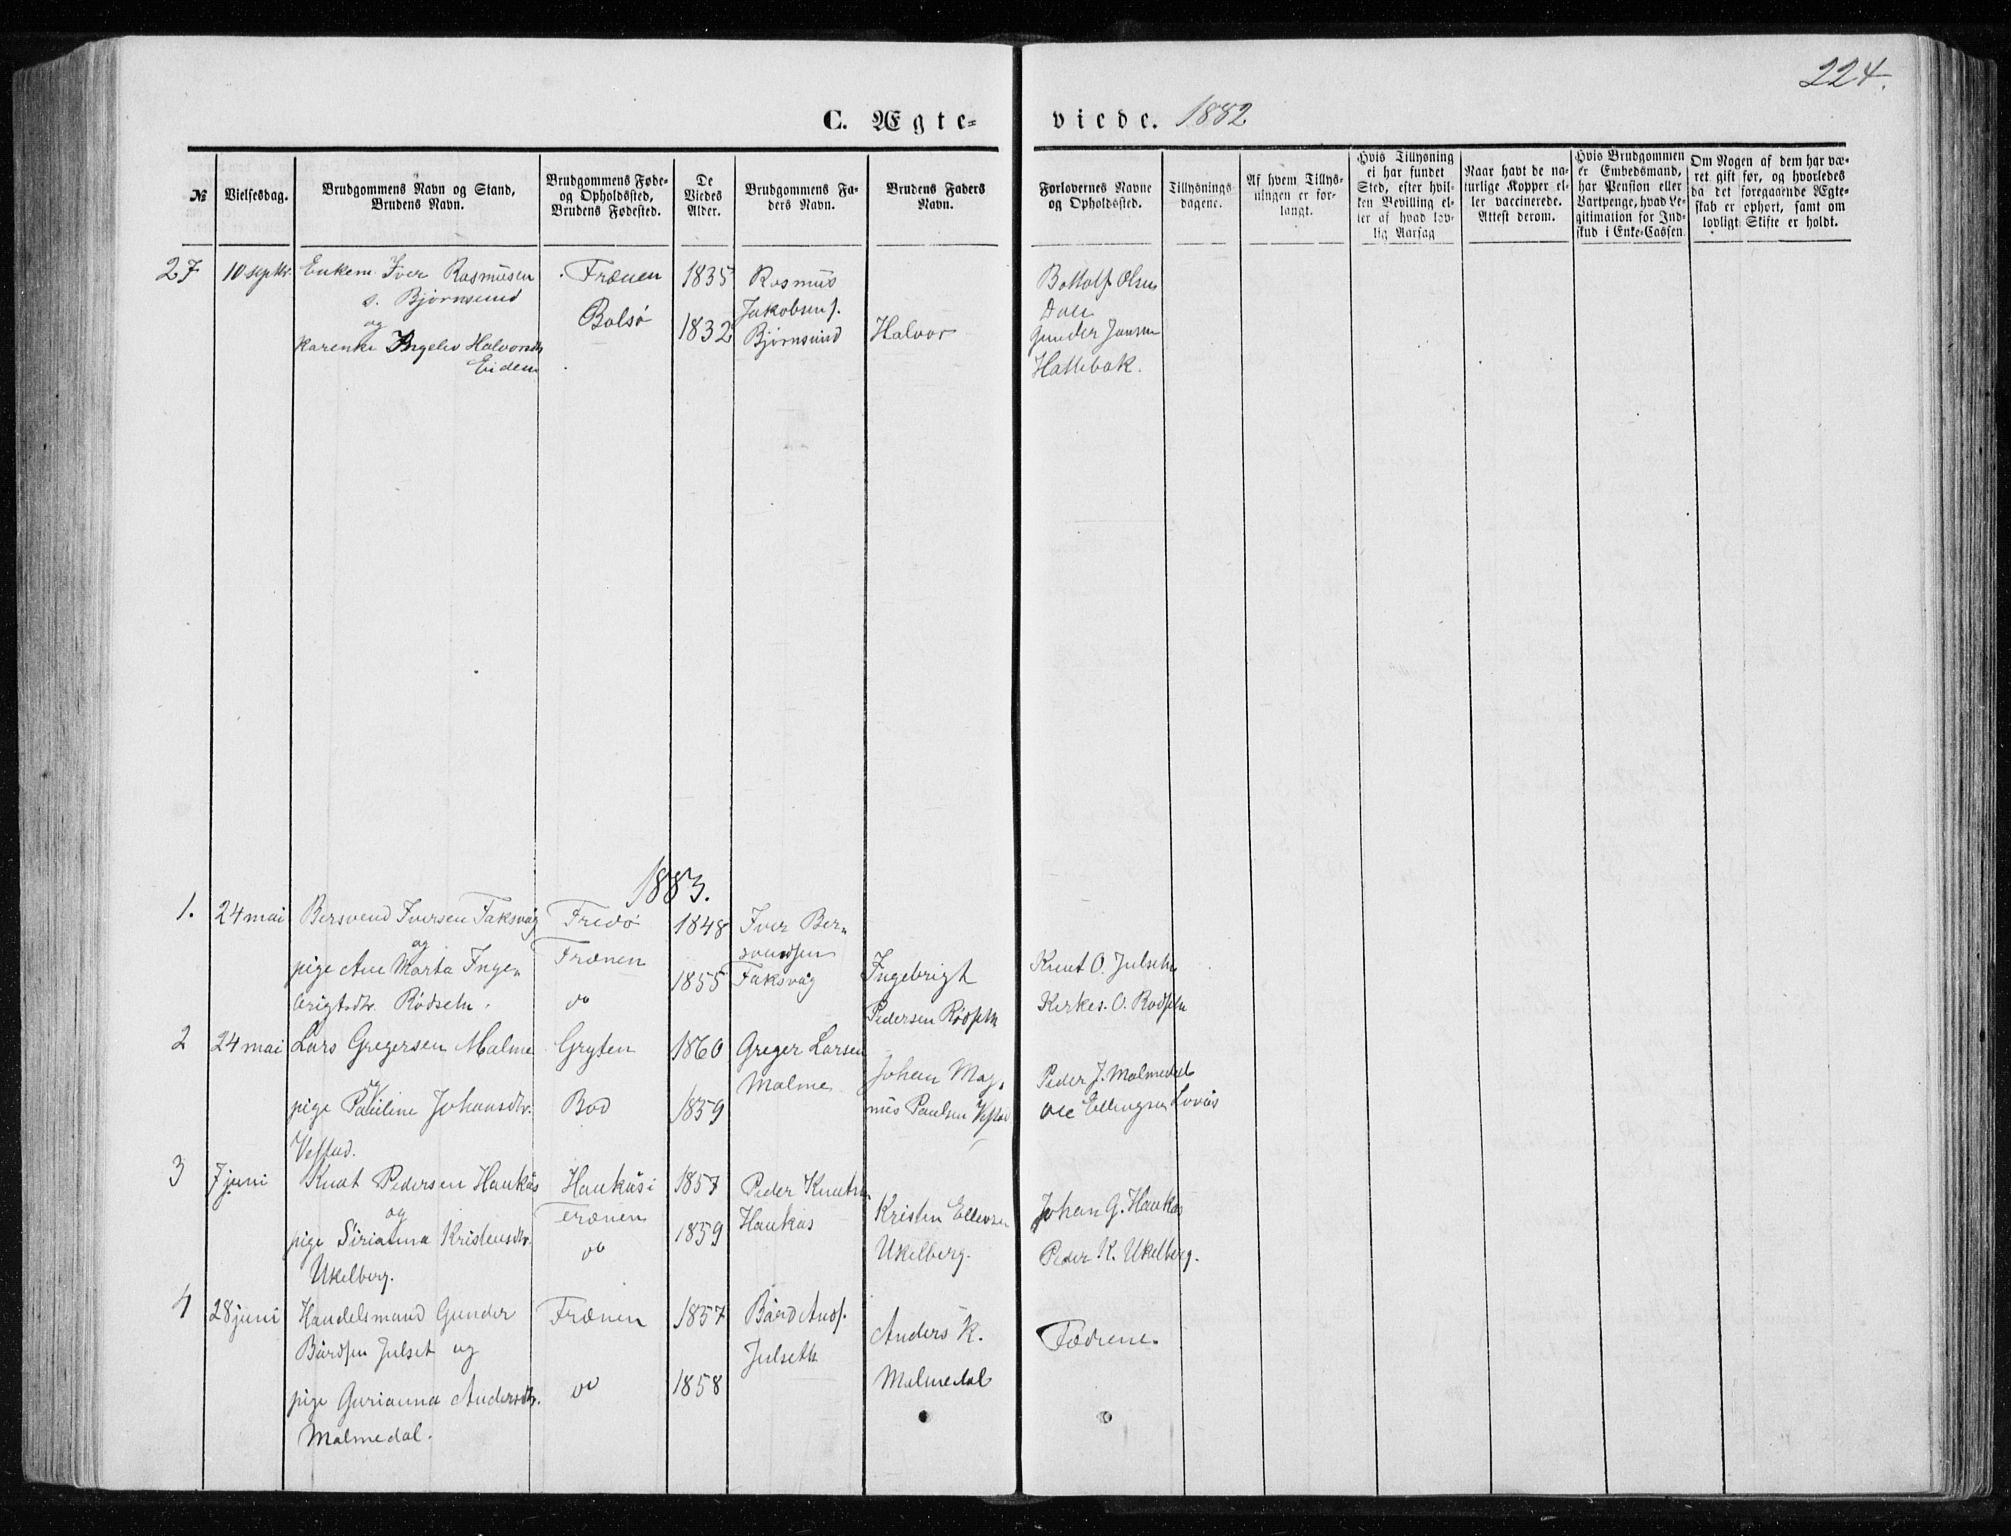 224.
C. Ægte-viede. 1882
№
Vielsesdag.
Brudgommens Navn og Stand,
Brudens Navn.
Brudgommens Føde-
og Opholdssted,
Brudens Fødested.
De
Viedes
Alder.
Brudgommens Fa-
ders Navn.
Brudens Faders
Navn.
Forlovernes Navne
og Opholdssted.
Tillysnings-
dagene.
Af hvem Tillys-
ningen er for-
langt.
Hvis Tillysning
ei har fundet
Sted, efter hvil-
ken Bevilling el-
ler af hvad lov-
lig Aarsag
Naar havt de na-
turlige Kopper el-
ler vaccinerede.
Attest derom.
Hvis Brudgommen
er Embedsmand,
har Pension eller
Vartpenge, hvad Le-
gitimation for Ind-
skud i Enke-Cassen
Om Nogen af dem har væ-
ret gift før, og hvorledes
da det foregaaende Ægte-
skab er ophørt, samt om
lovligt Skifte er holdt.
27
10 septbr.
Enkem. Iver Rasmusen
s. Bjørnsund
og
Karenke Ingelev Halvorsdtr
Eiden
Frænen
Bolsø
1835
1832
Rasmus
Jakobsen f.
Bjørnsund
Halvor
Bottolf Olsen
Dale
Gunder Jansen
Hattebak.
1883.
1.
24 mai
Bersvend Iversen Taksvåg
og
pige Ane Marta Inge-
brigtsdtr. Rødseth.
Fredø
Frænen
do
1848
1855
Iver Ber-
svendsen
Taksvåg
Ingebrigt
Pedersen Rødseth
Knut O. Julseth
O. Rødseth
2
24 mai
Lars Gregersen Malme
og
pige Pauline Johansdtr.
Vestad.
Gryten
Bod
1860
1859
Greger Larsen
Malme
Johan Mag-
nus Paulsen Vestad
Peder J. Malmedal
Ole Ellingsen Lovås
3
7 juni
Knut Pedersen Haukås
og
pige Sirianna Kristensdtr.
Ukelberg.
Haukås i
Frænen
do
1857
1859
Peder Knutsen
Haukås
Kristen Ellevsen
Ukelberg.
Johan G. Haukås
Peder K. Ukelberg.
4
28 juni
Handelsmand Gunder
Bårdsen Julset og
pige Gurianna Andersdtr.
Malmedal.
Frænen
do
1857
1858
Bård Ands.
Julseth
Anders K.
Malmedal
Fædrene.